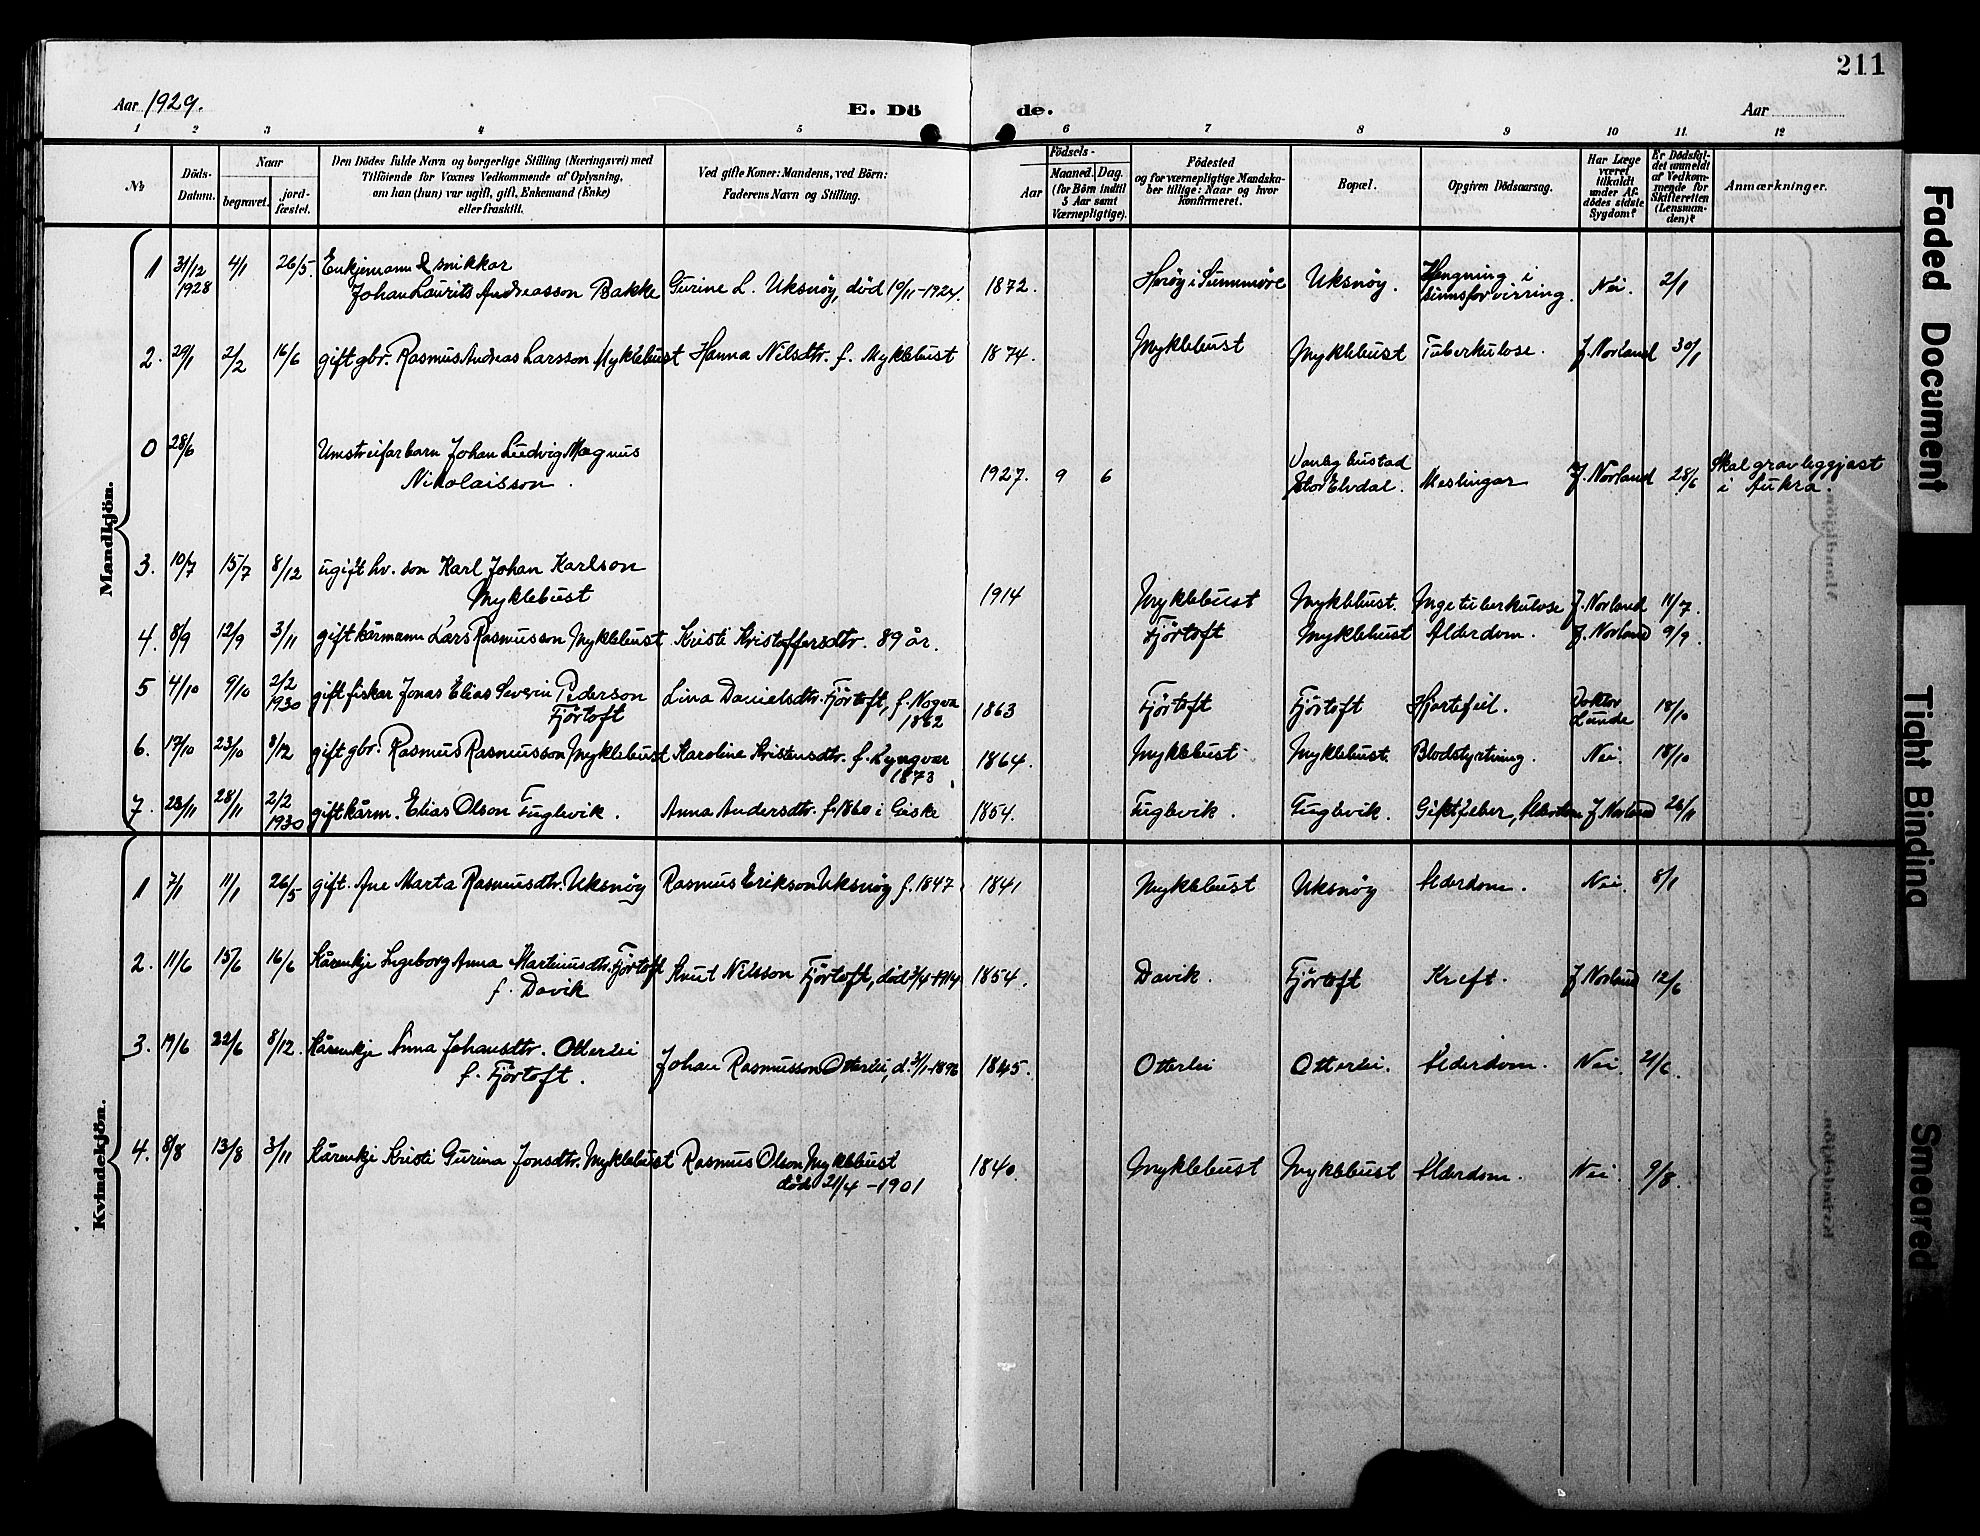 211
Aar 1929.
E. Döde.
Aar
1 2 3 4 5 6 7 8 9 10 11. 12
No
Döds-Datum.
Naar
begravet.
jord-fæstet.
Den Dödes fulde Navn og borgerlige Stilling (Næringsvei) med
Tilföiende for Voxnes Vedkommende af Oplysning,
om han (hun) var ugift, gift, Enkemand (Enke)
eller fraskilt.
Ved gifte Koner: Mandens, ved Börn:
Faderens Navn og Stilling.
Födsels-
Aar
Maaned. Dag.
(for Börn indtil
5 Aar samt
Værnepligtige).
Födested
og for værnepligtige Mandska-
ber tillige: Naar og hvor
konfirmeret.
Bopæl.
Opgiven Dödsaarsag.
Har Læge
været
tilkaldt
under Af-
dödes sidste
Sygdom?
Er Dödsfal-
det anmeldt
af Vedkom-
mende for
Skifteretten
(Lensman-
den)?
Anmærkninger.
Mandkjön.
1 31/12 1928 4/1 26/5. Enkjemann & snikkar
Johan Laurits Andreasson Bakke Gurine L. Uksnöy, död 10/11-1924. 1872. Heröy i Sunnmöre Uksnöy. Hengning i
sinnsforvirring. Nei. 2/1
2. 29/1 2/2 16/6 gift gbr. Rasmus Andreas Larsson Myklebust Hanna Nilsdtr. f. Myklebust 1874. Myklebust Myklebust Tuberkulose. J. Norland 30/1
0 28/6 Umstreifarbarn Johan Ludvig Magnus
Nikolaisson. 1927. 9 6 Vanleg bustad
Stor Elvdal. Meslingar J. Norland 28/6 Skal gravleggjast
i Aukra.
3. 10/7 15/7 8/12 ugift hv. son Karl Johan Karlson
Myklebust 1914 Myklebust Myklebust. Lungetuberkulose J. Norland 11/7.
4. 8/9 12/9 3/11 gift kårmann Lars Rasmusson Myklebust Kristi Kristoffersdtr. 89 år. Fjörtoft Myklebust Alderdom. J. Norland 9/9.
5 4/10 9/10 2/2 1930 gift fiskar Jonas Elias Severin Pederson
Fjörtoft Lina Danielsdtr. Fjörtoft, f. Nogva
1862 1863 Fjörtoft Fjörtoft Hjartefeil. Doktor
Lunde 18/10
6. 17/10 23/10 8/12 gift gbr. Rasmus Rasmusson Myklebust Karoline Kristensdtr. f. Lyngvær
1873 1864. Myklebust Myklebust. Blodstyrtning. Nei. 18/10
7. 23/11 28/11 2/2 1930 gift kårm. Elias Olson Fuglevik. Anna Andersdtr. f. 1860 i Giske 1854. Fuglevik. Fuglevik. Giktfeber, Alderdom J. Norland 26/11
Kvindekjön.
1 7/1 11/1 26/5 gift. Ane Marta Rasmusdtr. Uksnöy Rasmus Erikson Uksnöy f. 1847 1841 Myklebust Uksnöy Alderdom. Nei. 8/1
2. 11/6 15/6 16/6 Kårenkje Ingeborg Anna Martinusdtr. Fjörtoft
f. Davik Knut Nilsson Fjörtoft, död 3/4-1914 1854. Davik. Fjörtoft Kreft. J. Norland 12/6
3. 19/6 22/6 8/12. Kårenkje Anna Johansdtr. Otterlei
f. Fjörtoft. Johan Rasmusson Otterlei, d. 3/1-1896 1845. Otterlei Otterlei. Alderdom. Nei. 21/6.
4. 8/8 13/8 3/11 Kårenkje Kristi Gurina Jonsdtr. Myklebust Rasmus Olson Myklebust
död 21/4-1901 1840. Myklebust Myklebust Alderdom. Nei. 9/8.
Faded Document
Tight Binding
Smeared